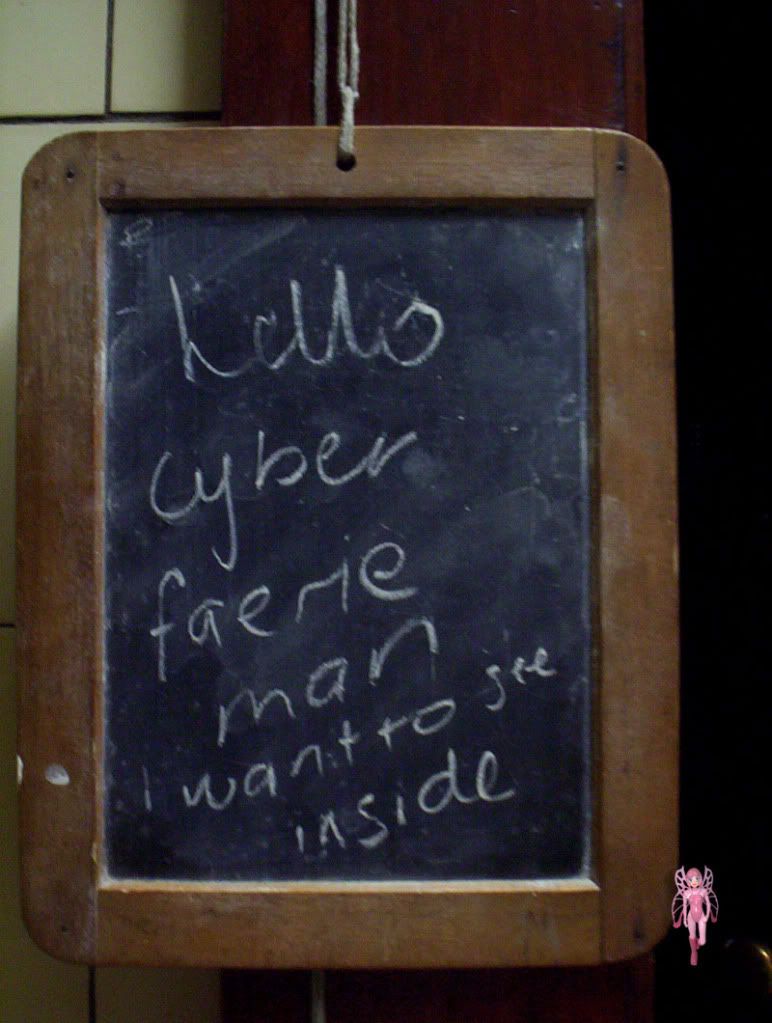 hello
cyber
faerie
man
I want to see
inside